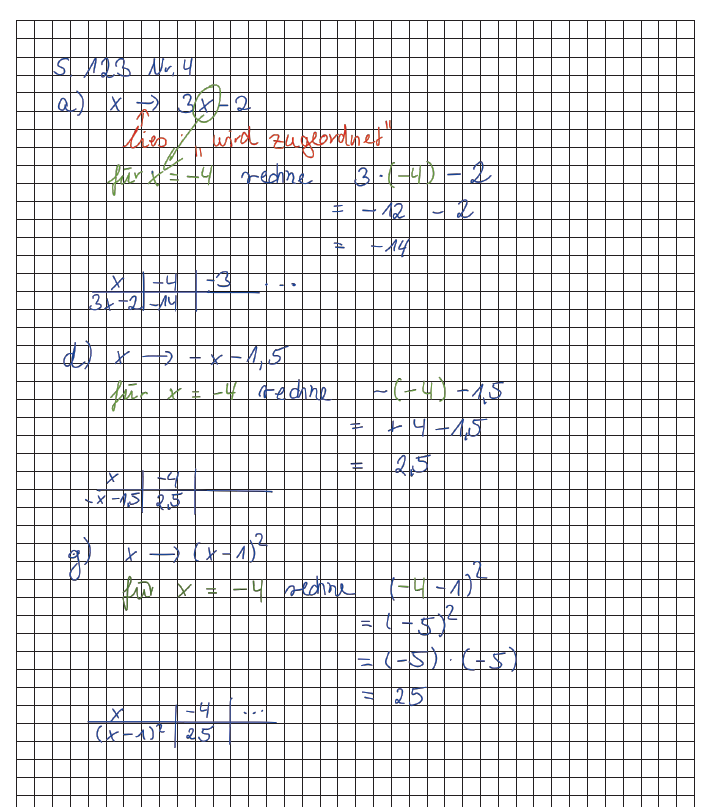 S 123 Nr. 4
a) x → 3x - 2
lies „wird zugeordnet"
für x = -4 rechne 3 · (-4) - 2
= -12 - 2
= -14
x | -4 | -3 ...
3x-2 | -14 |
d) x → - x - 1,5
für x = -4 rechne -(-4) - 1,5
= + 4 - 1,5
= 2,5
x | -4 |
-x-1,5 | 2,5 |
g) x → (x-1)²
für x = -4 rechne (-4 - 1)²
= (-5)²
= (-5) · (-5)
= 25
x | -4 | ...
(x-1)² | 25 |